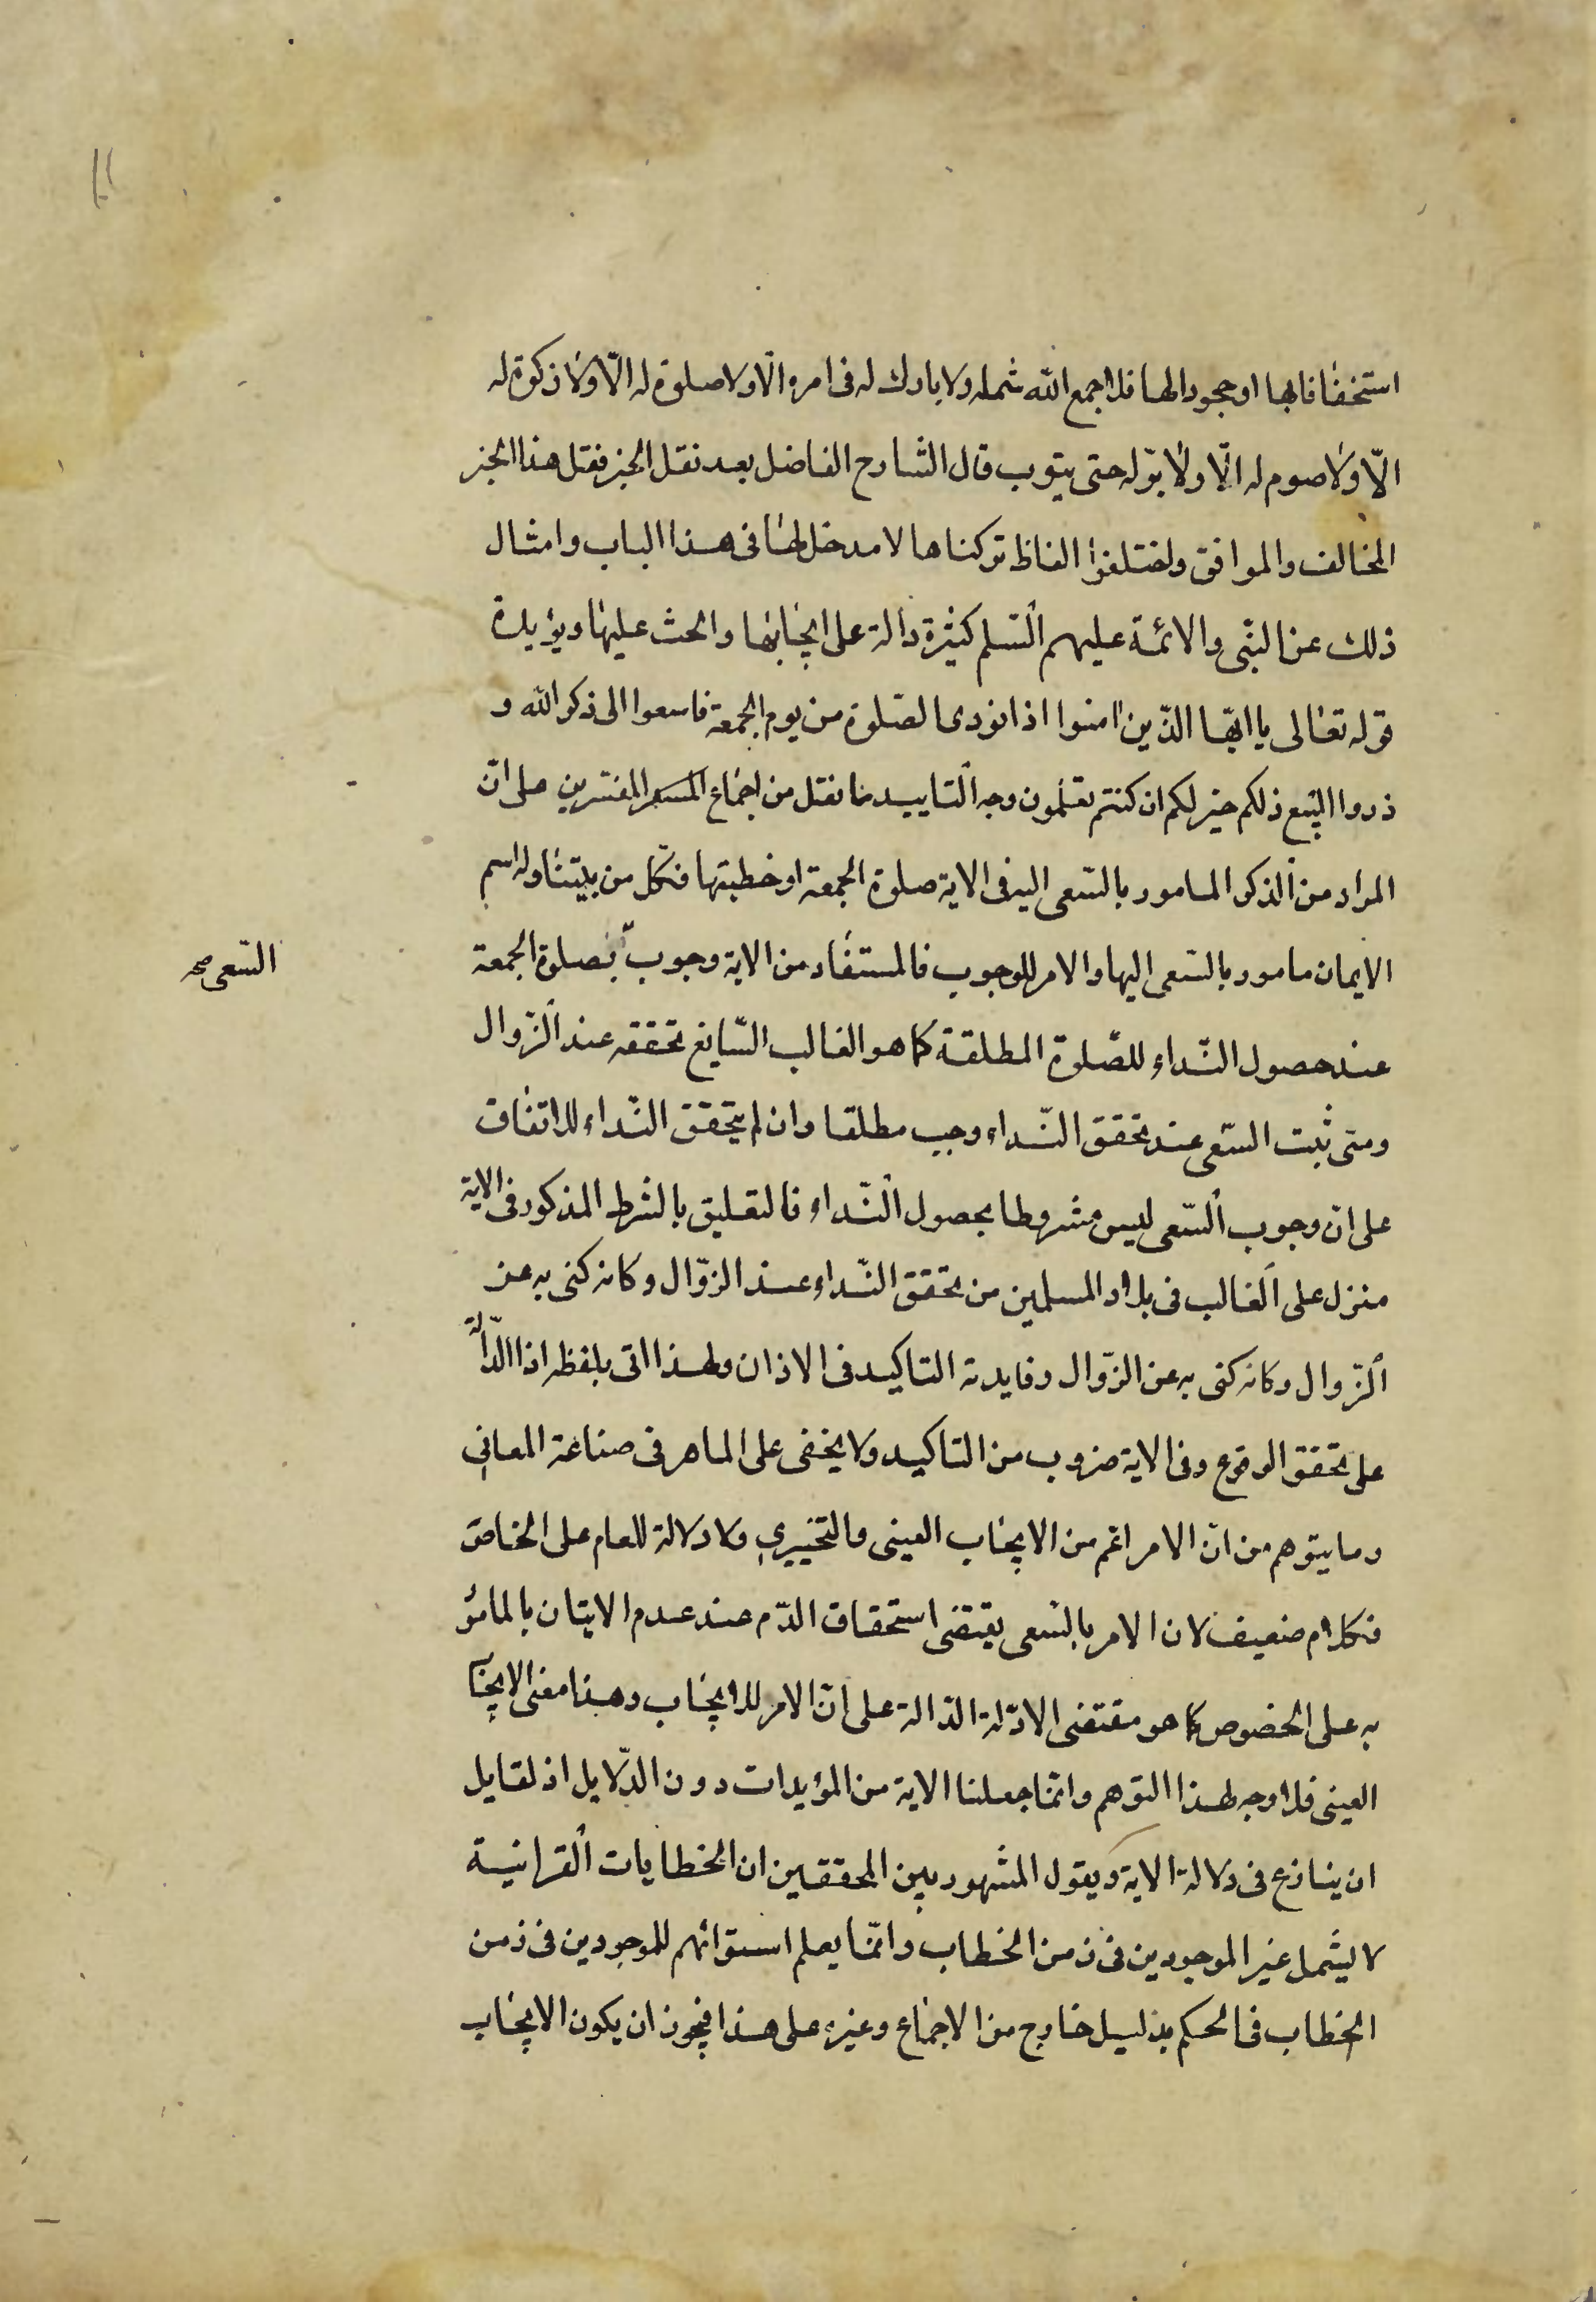 استخفافا بها او جحودا لها فلا جمع الله شمله ولا بارك له فى امره الا ولا صلوة له الا ولا زكوة له
الا ولا صوم له الا ولا بر له حتى يتوب قال الشارح الفاضل بعد نقل الخبر فنقل هذا الخبر
المخالف والموافق واختلفوا الفاظ تركناها لا مدخل لها فى هذا الباب وامثال
ذلك عن النبى والائمة عليهم السلم كثيرة دالة على ايجابها والحث عليها ويؤيده
قوله تعالى يا ايها الذين امنوا اذا نودى للصلوة من يوم الجمعة فاسعوا الى ذكر الله و
ذروا البيع ذلكم خير لكم ان كنتم تعلمون وجه التاييد ما نقل من اجماع المفسرين على ان
المراد من الذكر المامور بالسعى اليه فى الاية صلوة الجمعة او خطبتها فكل من يتناوله اسم
الايمان مامور بالسعى اليها والامر للوجوب فالمستفاد من الاية وجوب لصلوة الجمعة
السعى صح
عند حصول النداء للصلوة المطلقة كما هو الغالب الشايع تحققه عند الزوال
ومتى ثبت السعى عند تحقق النداء وجب مطلقا وان لم يتحقق النداء للاتفاق
على ان وجوب السعى ليس مشروطا بحصول النداء فالتعليق بالشرط المذكور فى الاية
منزل على الغالب فى بلاد المسلمين من تحقق النداء عند الزوال وكانه كنى به عن
الزوال وكانه كنى به عن الزوال وفايدته التاكيد فى الاذان ولهذا اتى بلفظه اذا الدالة
على تحقق الوقوع وفى الاية ضروب من التاكيد ولا يخفى على الماهر فى صناعة المعانى
وما يتوهم من ان الامر اعم من الايجاب العينى والتخييرى ولا دلالة للعام على الخاص
فكلام ضعيف لان الامر بالسعى يقتضى استحقاق الذم عند عدم الايتان بالمامور
به على الخصوص كما هو مقتضى الادلة الدالة على ان الامر للايجاب وهذا معنى الايجاب
العينى فلا وجه لهذا التوهم وانما جعلنا الاية من المؤيدات دون الدلايل اذ لقايل
ان ينازع فى دلالة الاية ويقول المشهور بين المحققين ان الخطابات القرانية
لا يشمل غير الموجودين فى زمن الخطاب وانما يعلم استوائهم للموجودين فى زمن
الخطاب فى الحكم بدليل خارج من الاجماع وغيره على هذا فيجوز ان يكون الايجاب